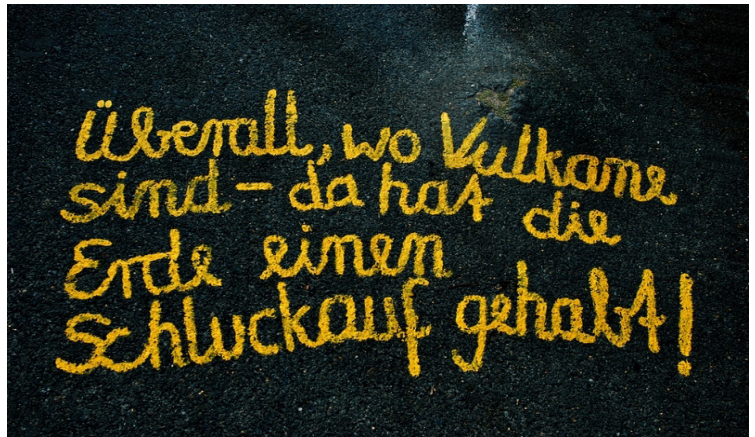 Überall, wo Vulkane
sind - da hat die
Erde einen
Schluckauf gehabt!